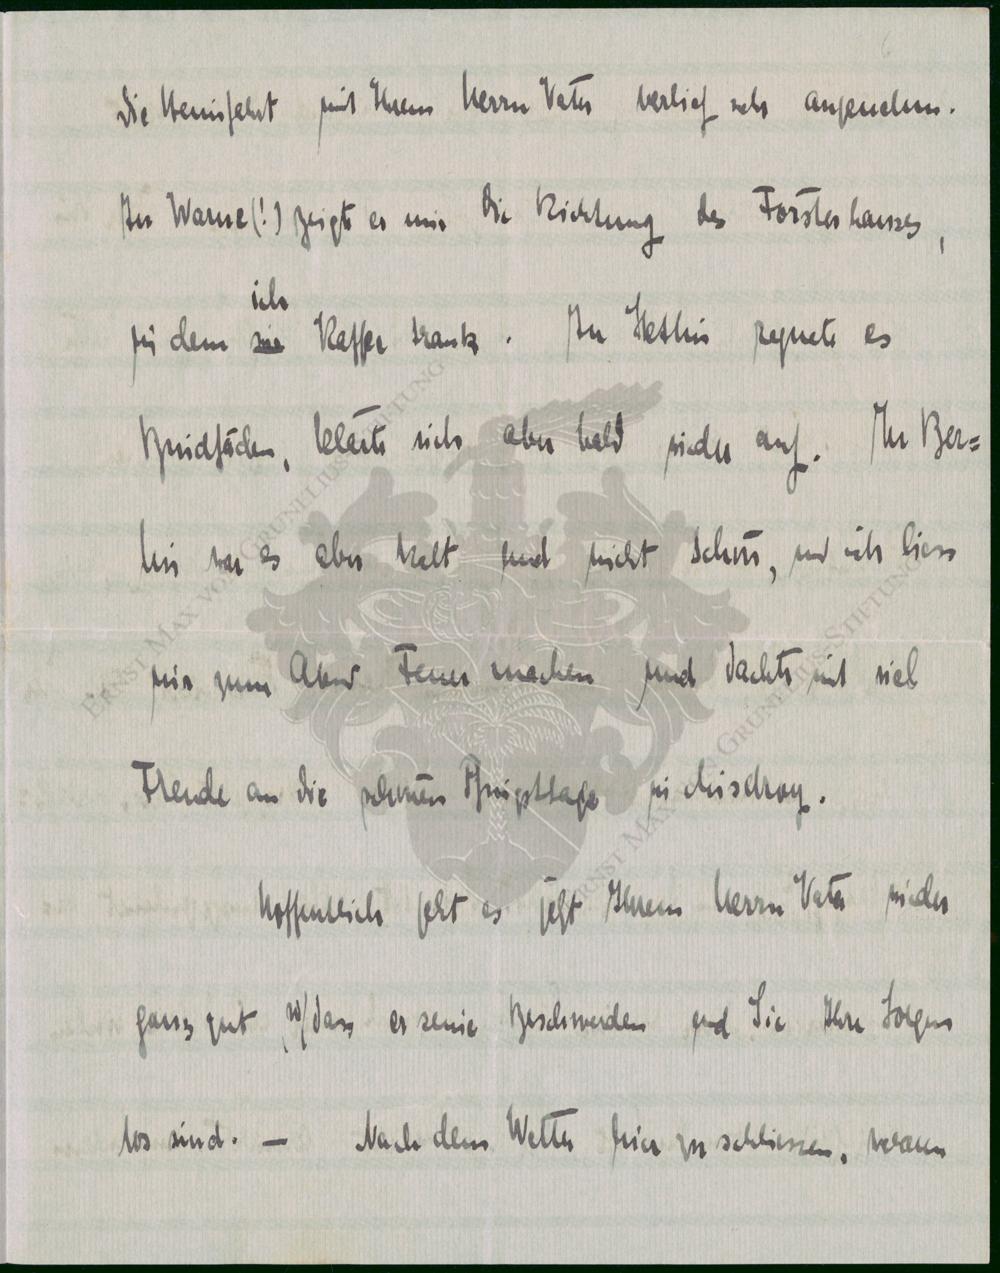 Die Heimfahrt mit Ihrem Herrn Vater verlief sehr angenehm.
In Warne(!) zeigte er mir die Richtung des Forsterhauses,
in dem ich Kaffee trank. In Stettin regnete es
Bindfäden, klärte sich aber bald wieder auf. In Ber=
lin war es aber kalt und nicht schön, und ich liess
mir zum Abend Feuer machen und dachte mit viel
Freude an die schönen Pfingsttage in Misdroy.
Hoffentlich geht es jetzt Ihrem Herrn Vater wieder
ganz gut, so dass er seine Beschwerden und Sie Ihre Sorgen
los sind. — Nach dem Wetter hier zu schliessen, waren
ERNST MAX VON GRUNELIUS-STIFTUNG
ERNST MAX VON GRUNELIUS-STIFTUNG